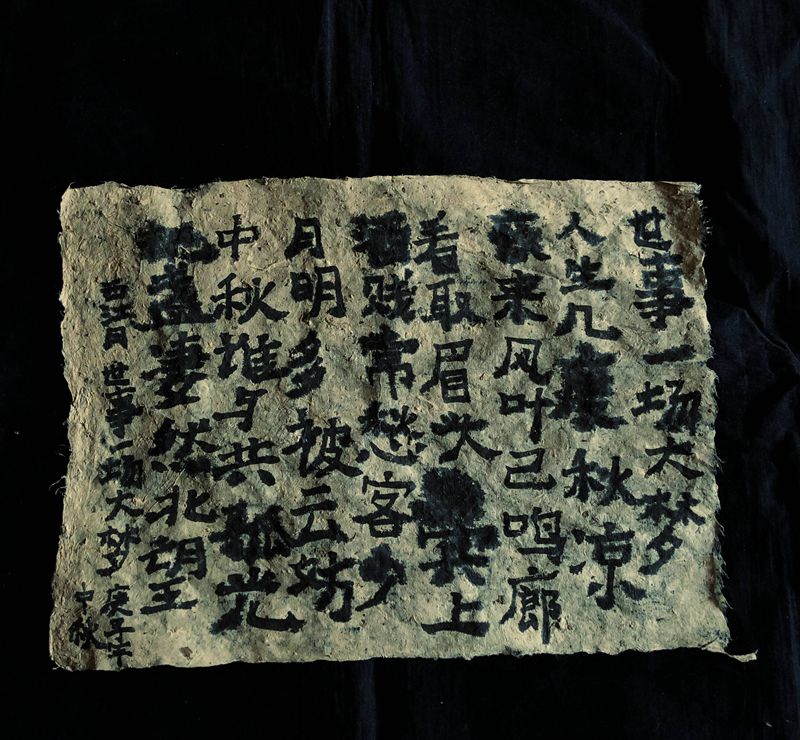 世事一场大梦
人生几度秋凉
夜来风叶已鸣廊
看取眉头鬓上
酒贱常愁客少
月明多被云妨
中秋谁与共孤光
把盏凄然北望
西江月 世事一场大梦 庚子年
中秋